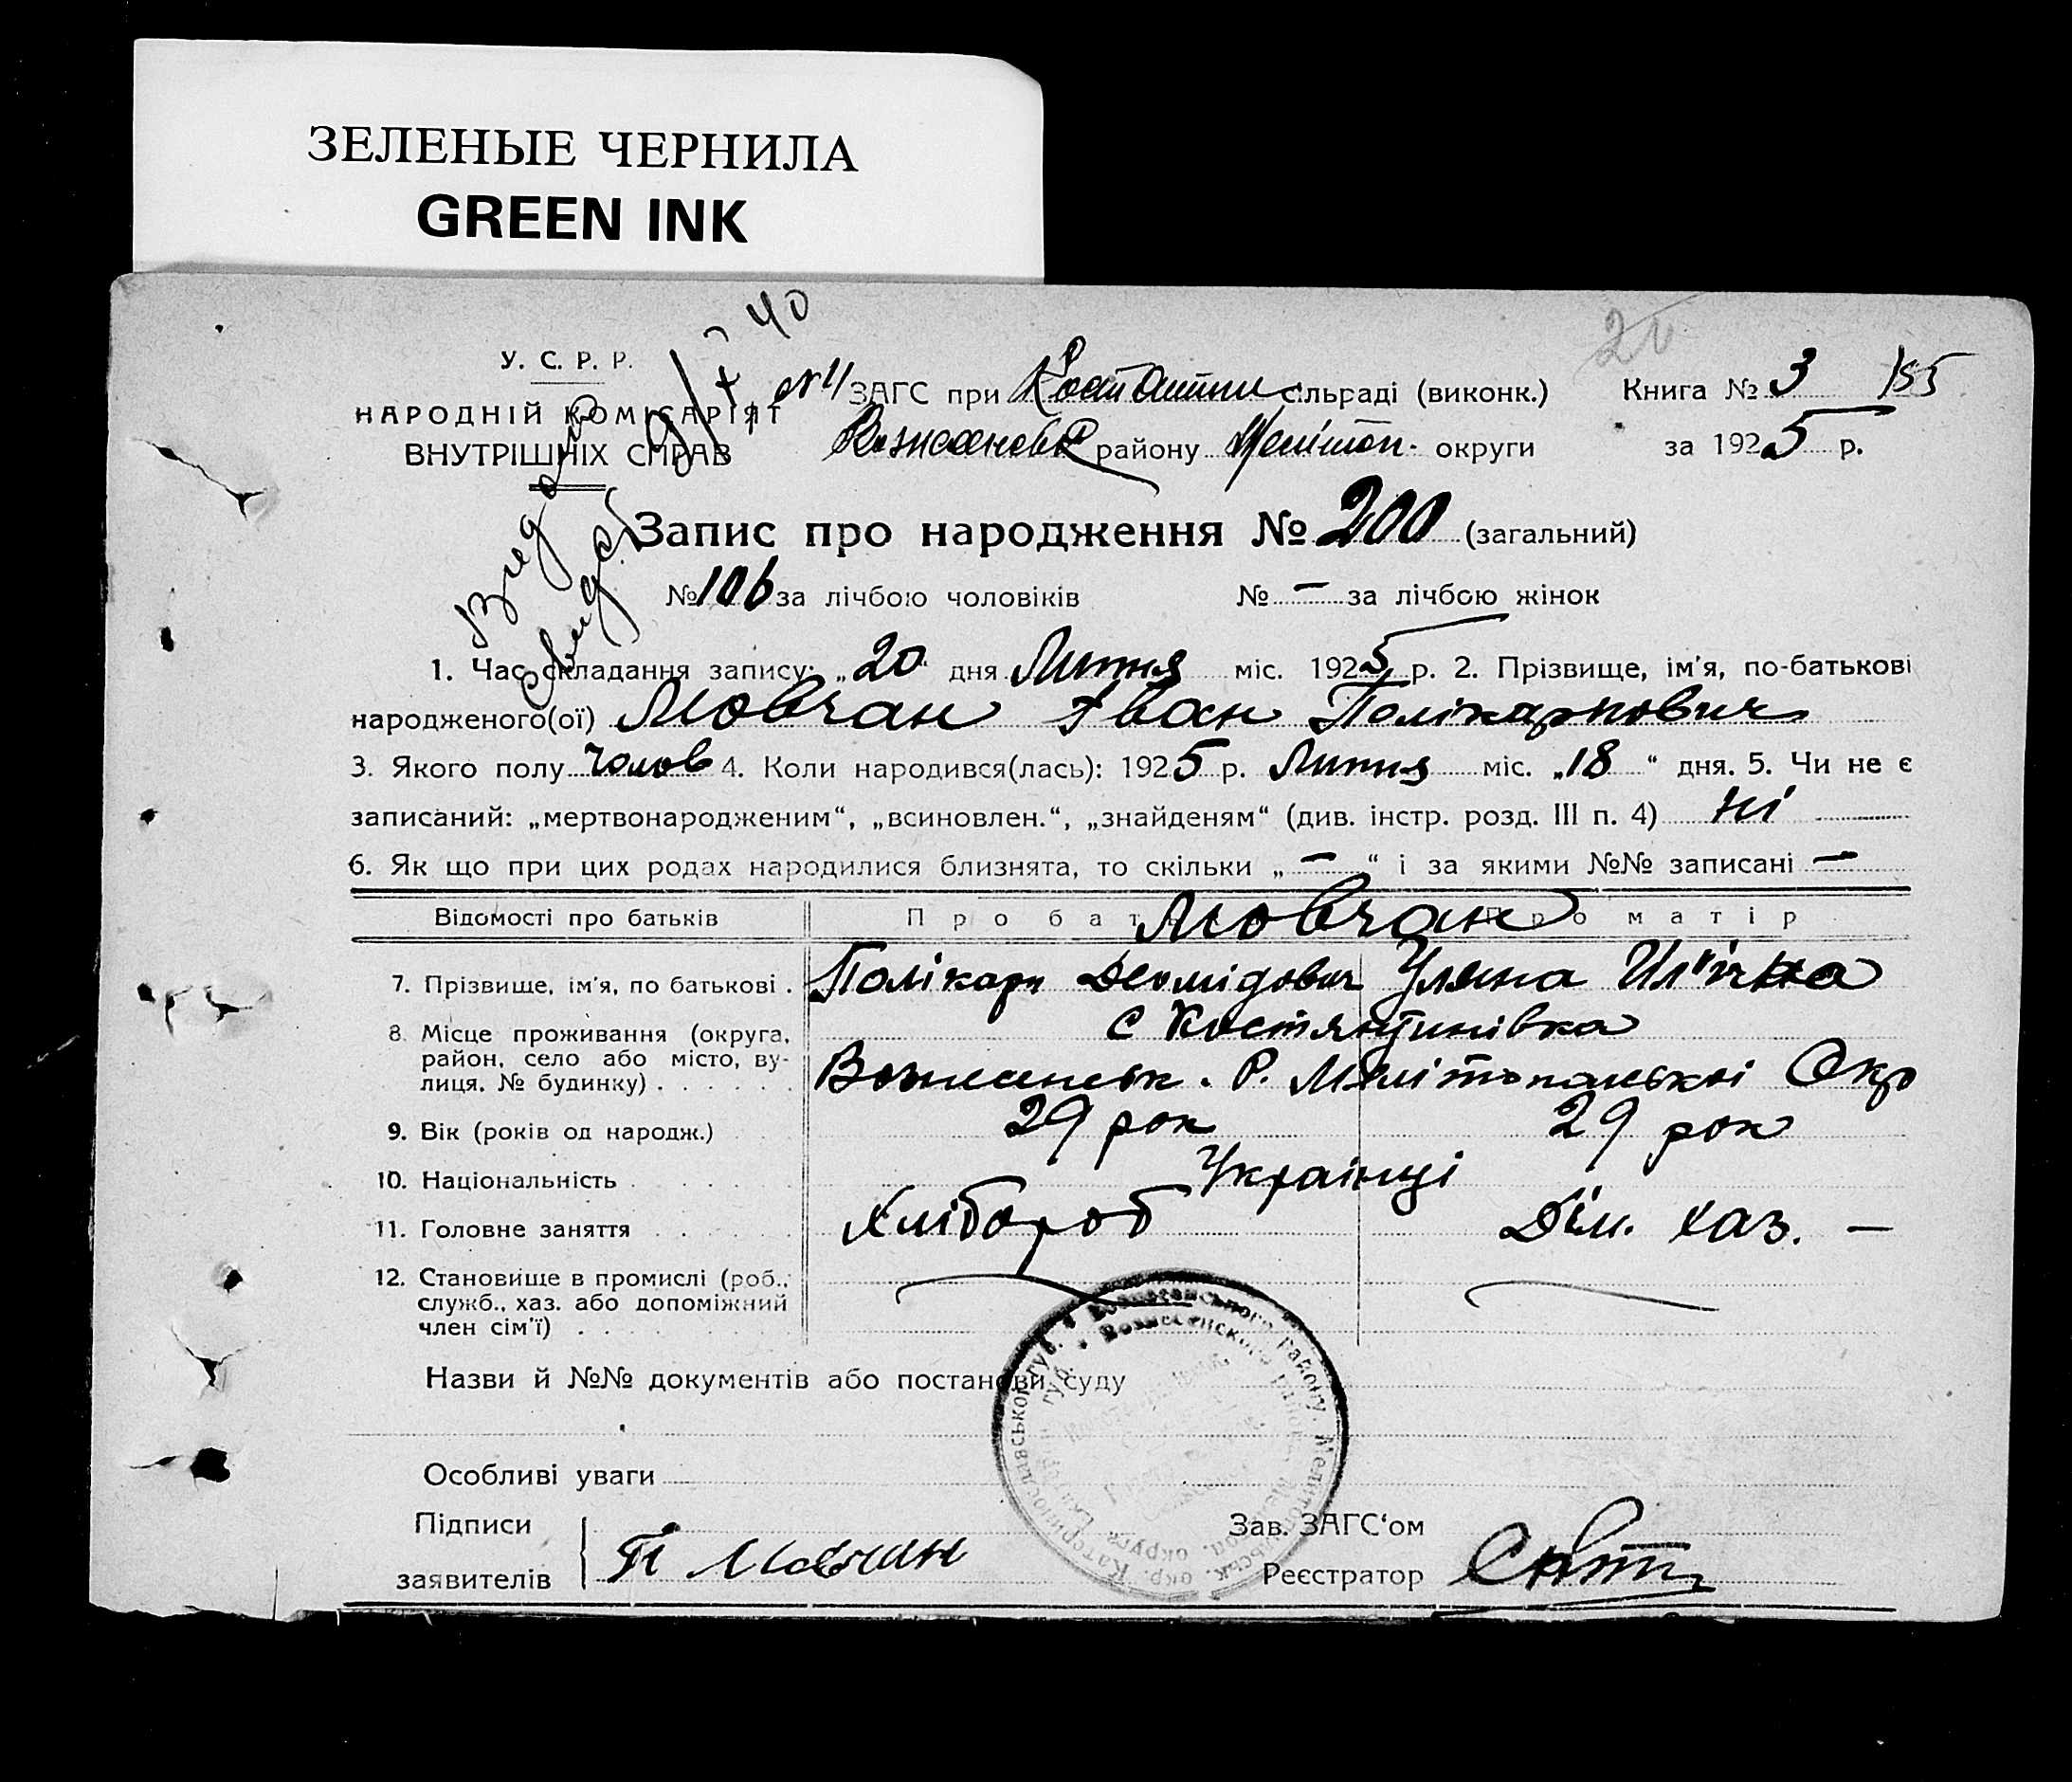 ЗЕЛЕНЫЕ ЧЕРНИЛА
GREEN INK
40
20
У. С. Р. Р.
НАРОДНІЙ КОМІСАРІЯТ
ВНУТРІШНІХ СПРАВ
ЗАГС при Костянтин сільраді (виконк.)
Книга № 3 155
района Меліtop. округи
за 1925 р.
Запис про народження № 200 (загальний)
№ 106 за лічбою чоловіків № – за лічбою жінок
1. Час складання запису: „20“ дня Липня міс. 1925 р. 2. Прізвище, ім'я, по-батькові
народженого(ої) Мовчан Іван Полікарпович
3. Якого полу чолов 4. Коли народився(лась): 1925 р. Липня міс. „18“ дня. 5. Чи не є
записаний: „мертвонародженим“, „всиновлен.“, „знайденям“ (див. інстр. розд. III п. 4) ні
6. Як що при цих родах народилися близнята, то скільки „–“ і за якими №№ записані –
Відомості про батьків Про бат Мовчан Про матір
7. Прізвище, ім'я, по батькові . Полікарп Деомідович Уляна Іл'їчна
8. Місце проживання (округа, район, село або місто, вулиця, № будинку) с Костянтинівка
Вознесенськ. Р. Мелітопольскі Окр
9. Вік (років од народж.) 29 рок 29 рок
10. Національність Українці
11. Головне заняття Хлібороб Дом. хаз. –
12. Становище в промислі (роб., служб., хаз. або допоміжний член сім'ї)
Назви й №№ документів або постанови суду
Особливі уваги
Підписи
заявителів
П Мовчан
Зав. ЗАГС‘ом
Реєстратор